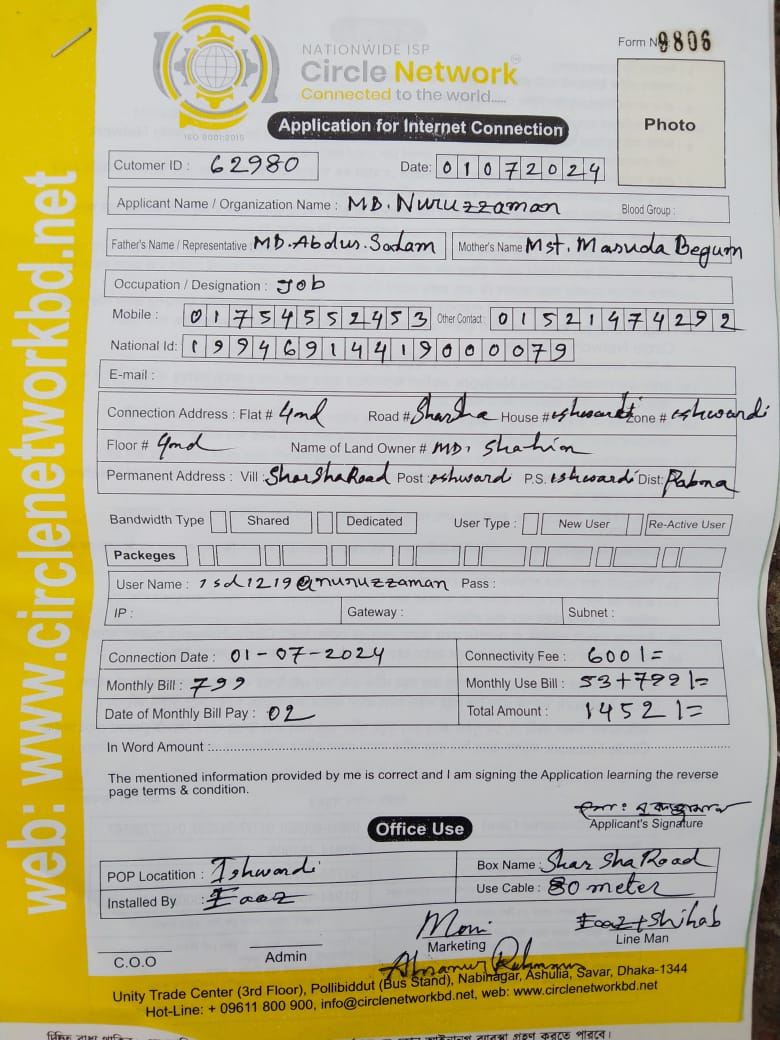 NATIONWIDE ISP
Circle Network
Connected to the world.....
ISO 9001:2015
Form No 9806
Photo
Application for Internet Connection
Cutomer ID : 62980 Date: 01072024
Applicant Name / Organization Name : MD. Nuruzzaman Blood Group :
Father's Name / Representative : MD. Abdus. Salam Mother's Name Mst. Masuda Begum
Occupation / Designation : Job
Mobile : 01754552453 Other Contact : 01521474292
National Id: 19946914419000079
E-mail :
Connection Address : Flat # 4nd Road # Sharsha House # ishwardi Zone # ishwardi
Floor # 4nd Name of Land Owner # MD. Shahin
Permanent Address : Vill : Sharsha Road Post : ishwardi P.S. ishwardi Dist: Pabna
Bandwidth Type Shared Dedicated User Type : New User Re-Active User
Packeges
User Name : isd1219@nuruzzaman Pass :
IP : Gateway : Subnet :
Connection Date : 01-07-2024 Connectivity Fee : 600/=
Monthly Bill : 799 Monthly Use Bill : 53+799/=
Date of Monthly Bill Pay : 02 Total Amount : 1452/=
In Word Amount :
The mentioned information provided by me is correct and I am signing the Application learning the reverse
page terms & condition.
Applicant's Signature
Office Use
POP Locatition : Ishwardi Box Name : Shar Sha Road
Installed By : Eaaz Use Cable : 80 meter
C.O.O Admin Moni Marketing Eaaz + Shihab Line Man
Unity Trade Center (3rd Floor), Pollibiddut (Bus Stand), Nabinagar, Ashulia, Savar, Dhaka-1344
Hot-Line: + 09611 800 900, info@circlenetworkbd.net, web: www.circlenetworkbd.net
web: www.circlenetworkbd.net